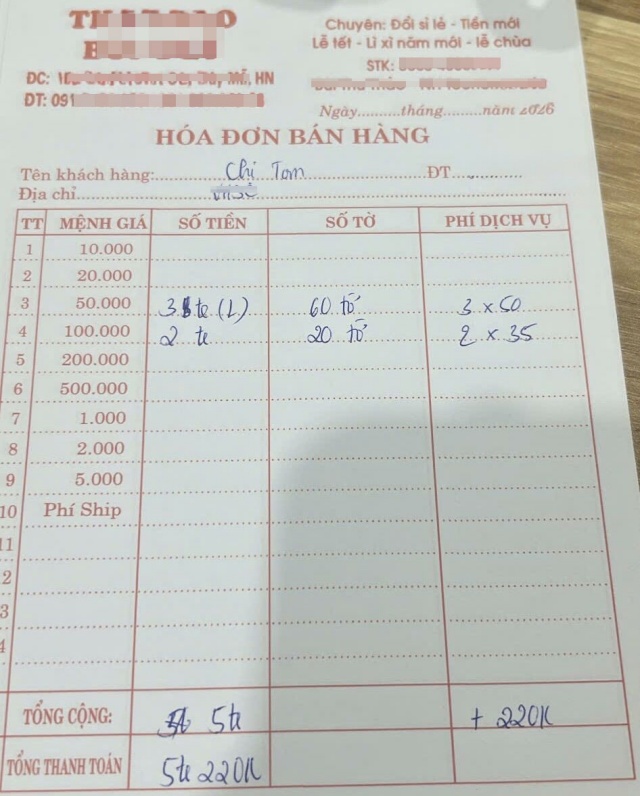 Chuyên: Đổi sỉ lẻ - Tiền mới
Lễ tết - Lì xì năm mới - lễ chùa
ĐC: Mễ, HN
STK:
ĐT: 091
Ngày..........tháng..........năm 2026
HÓA ĐƠN BÁN HÀNG
Tên khách hàng: Chị Tom ĐT
Địa chỉ
TT MỆNH GIÁ SỐ TIỀN SỐ TỜ PHÍ DỊCH VỤ
1 10.000
2 20.000
3 50.000 3 te (L) 60 tờ 3 x 50
4 100.000 2 te 20 tờ 2 x 35
5 200.000
6 500.000
7 1.000
8 2.000
9 5.000
10 Phí Ship
11
2
3
4
TỔNG CỘNG: 5te + 220K
TỔNG THANH TOÁN 5te 220K